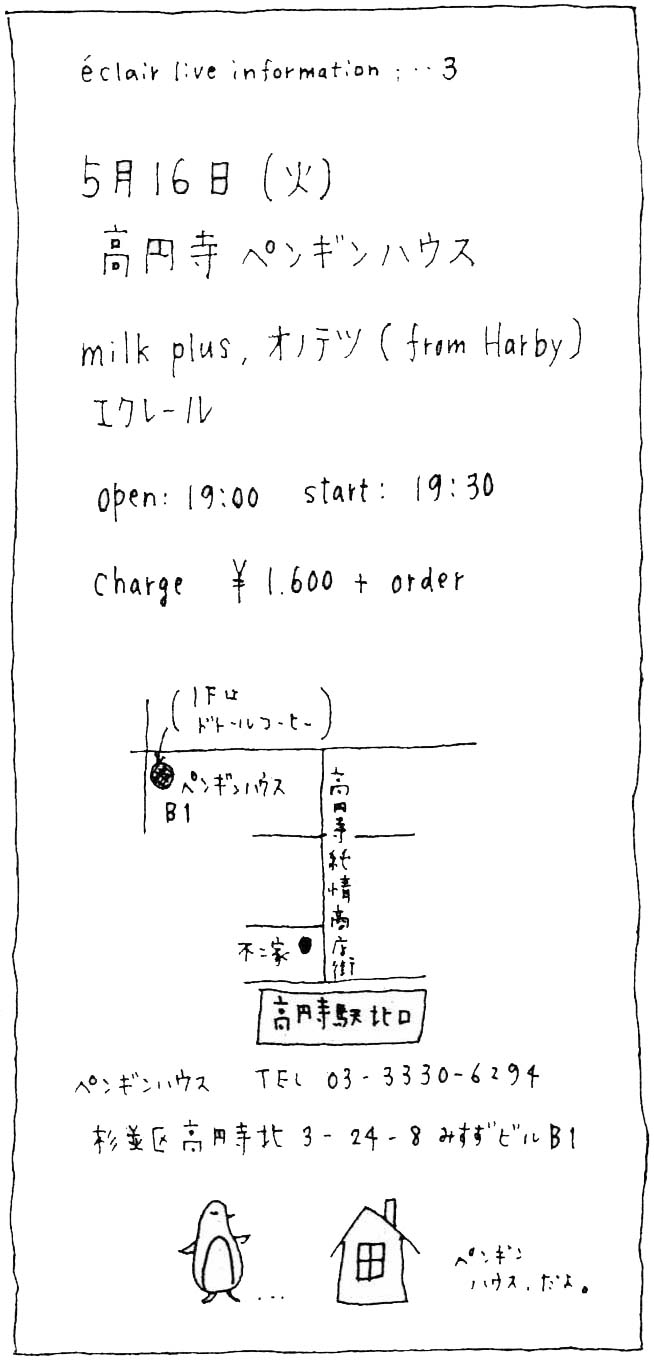 éclair live information ; ・・・3
5月16日（火）
高円寺 ペンギンハウス
milk plus, オノテツ ( from Harby )
エクレール
open: 19:00 start: 19:30
charge ¥ 1.600 + order
( 1Fは
ドトールコーヒー )
ペンギンハウス
B1
高円寺純情商店街
不二家
高円寺駅北口
ペンギンハウス TEL 03-3330-6294
杉並区高円寺北 3-24-8 みすずビルB1
...
ペンギン
ハウス、だよ。